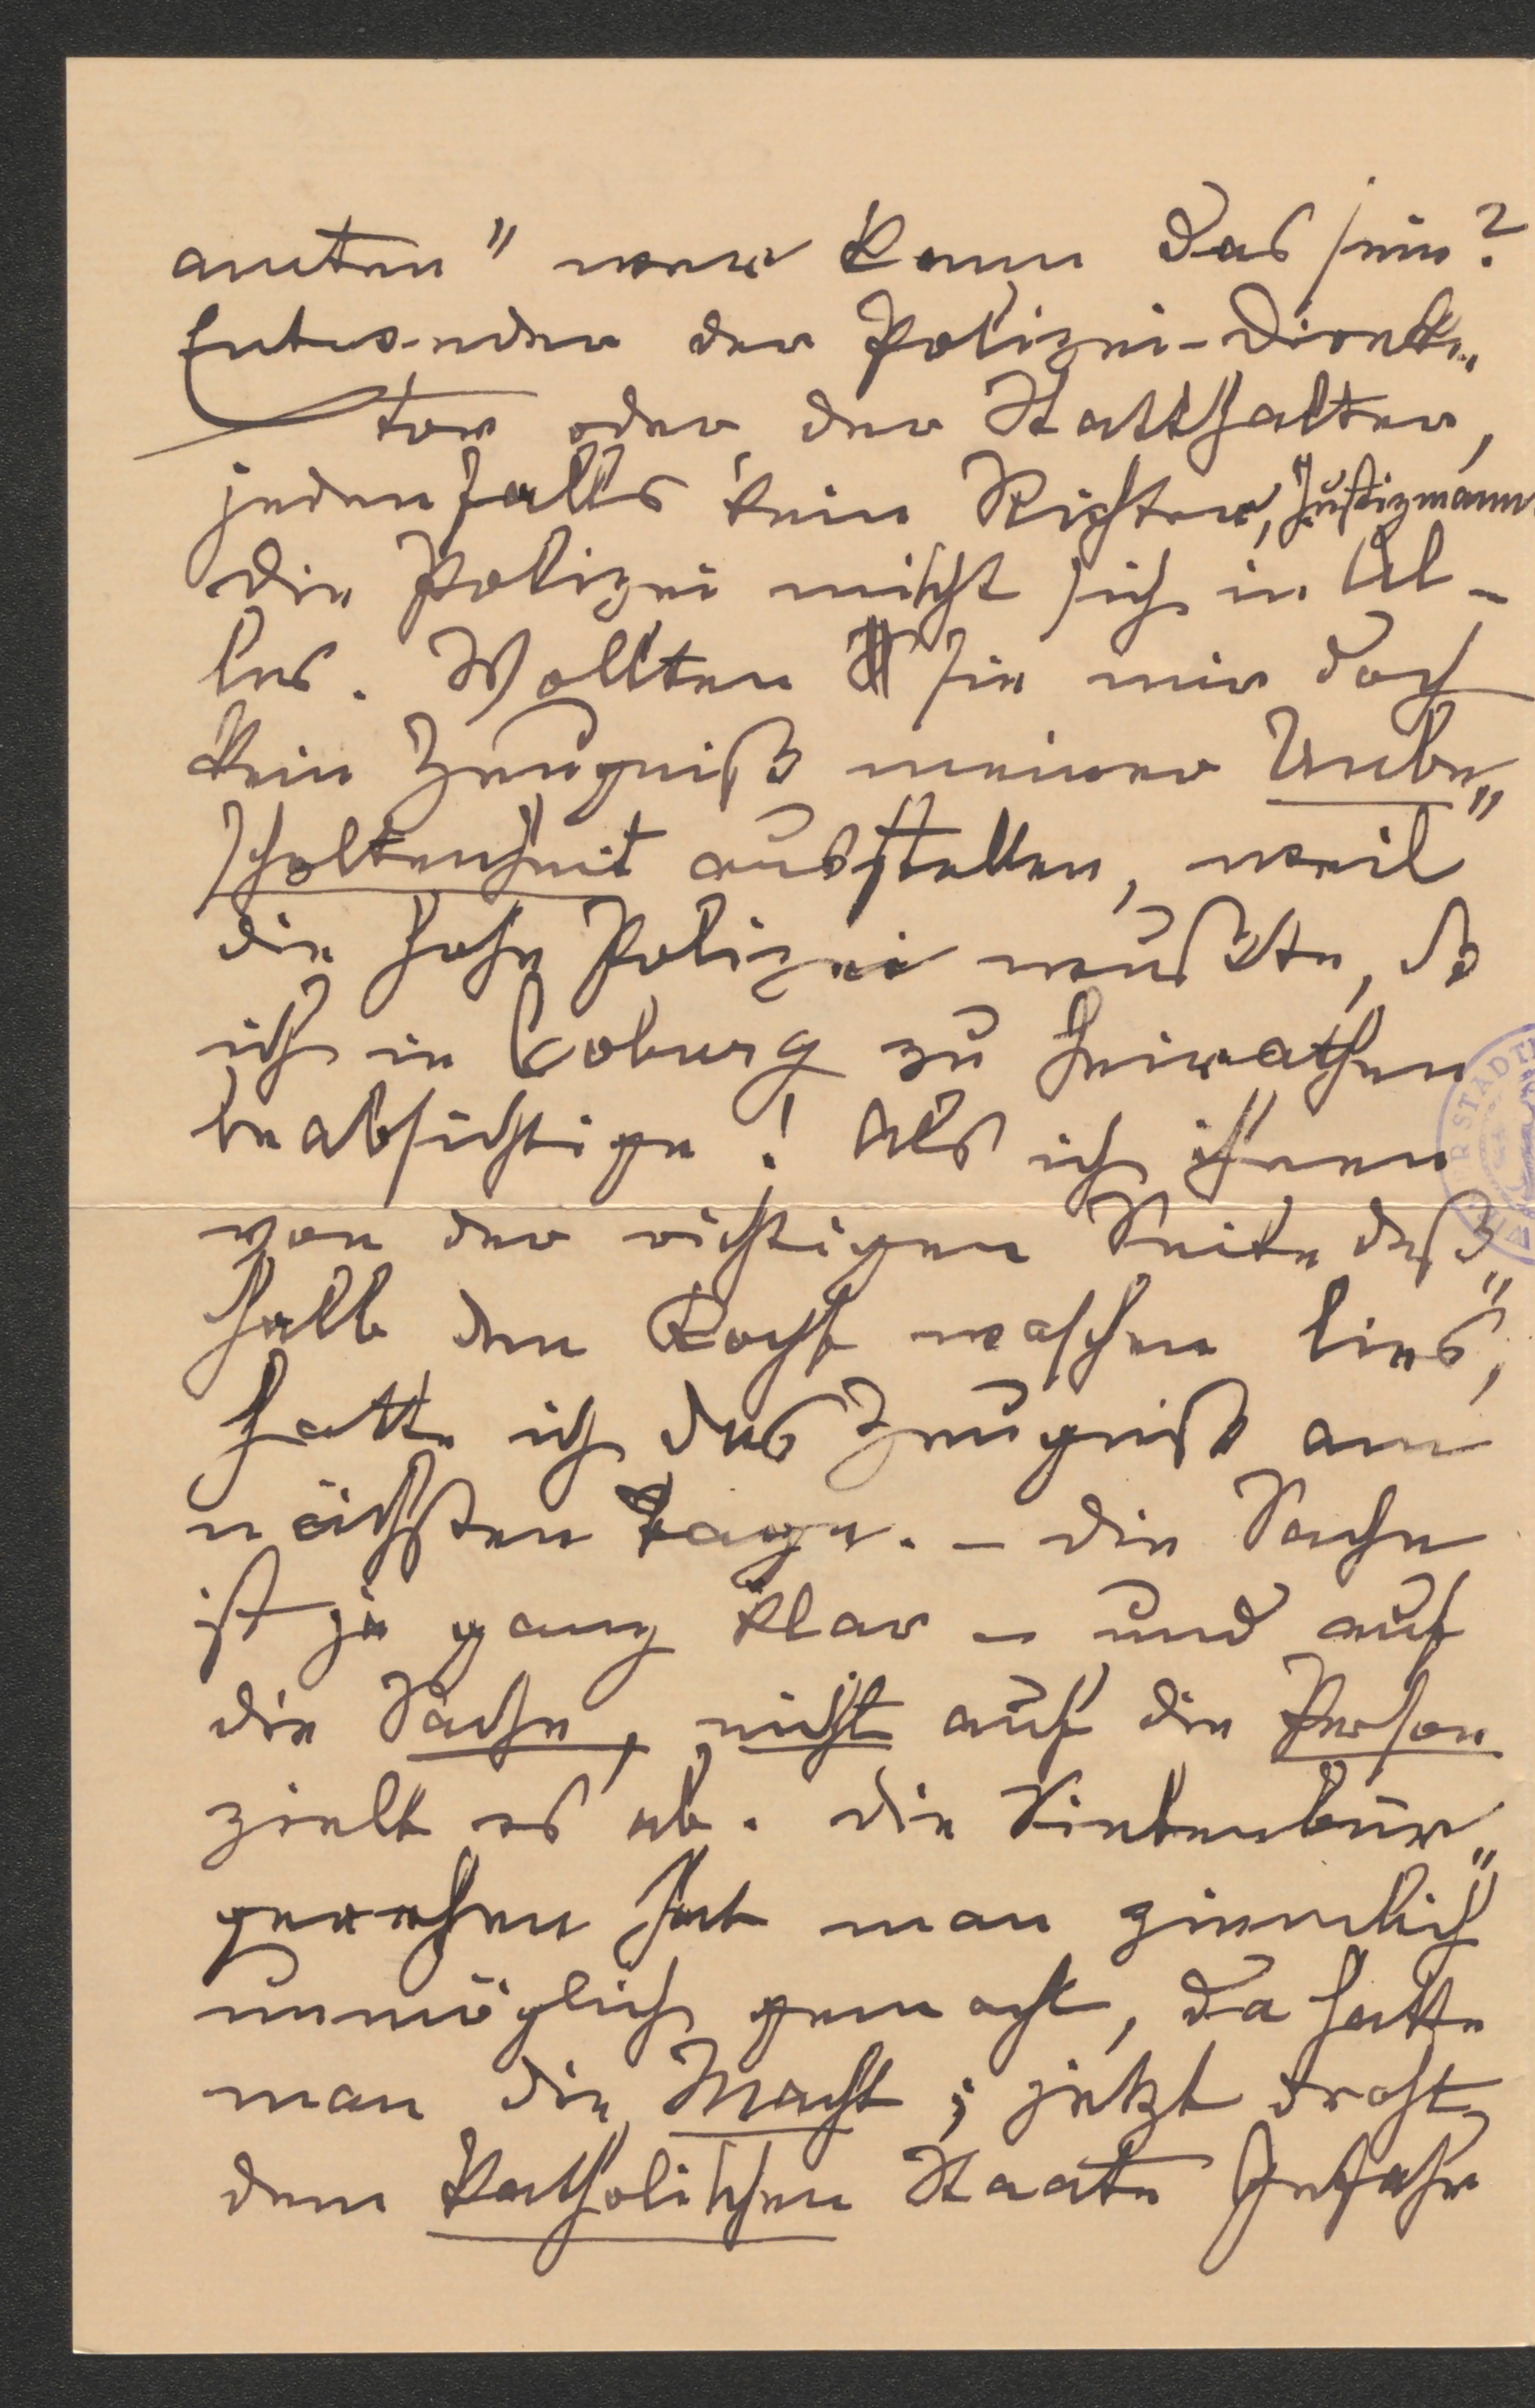 amten" wer kann das sein?
Entweder der Polizei-Direk„
tor oder der Statthalter,
jedenfalls kein Richter, Justizmann
die Polizei mischt sich in Al-
les. Wollten Sie mir doch
kein Zeugniß meiner Unbe„
scholtenheit ausstellen, weil
die hohe Polizei wußte, ds
ich in Coburg zu heirathen
beabsichtige! Als ich ihnen
von der richtigen Seite deß„
halb den Kopf waschen lies,
hatte ich das Zeugniß am
nächsten Tage. – die Sache
ist ja ganz klar – und auf
die Sache, nicht auf die Person
zielt es ab. die Siebenbür„
gerehen hat man ziemlich
unmöglich gemacht, da hatte
man die Macht; jetzt droht
dem katholischen Staate Gefahr
R STADT